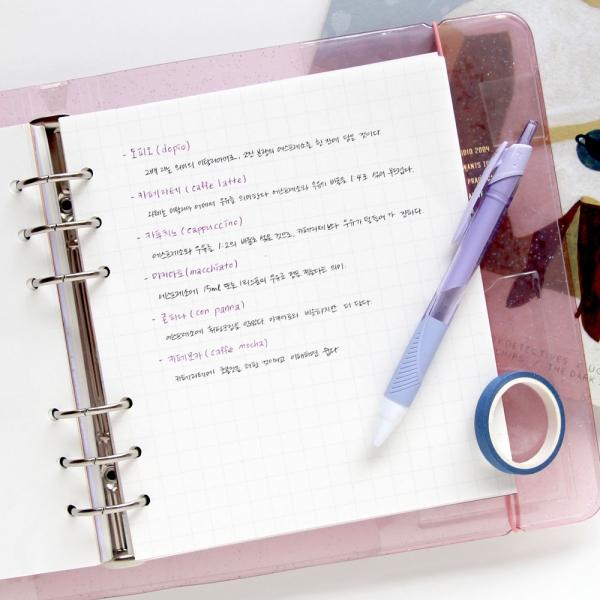 - 도피오 (dopio)
2배 라는 의미의 이탈리아어로, 2잔 분량의 에스프레소를 한 잔에 담은 것이다.
- 카페라떼 (caffe latte)
라떼는 이탈리아어에서 우유를 의미한다. 에스프레소와 우유의 비율을 1:4로 섞어 부드럽다.
- 카푸치노 (cappuccino)
에스프레소와 우유를 1:2의 비율로 섞은 것으로, 카페라떼보다 우유가 덜 들어가 진하다.
- 마끼아또 (macchiato)
에스프레소에 15ml 또는 1티스푼의 우유로 점을 찍는다는 의미.
- 콘파나 (con panna)
에스프레소에 휘핑크림을 얹었다. 마끼아또와 비슷하지만 더 달다.
- 카페모카 (caffe mocha)
카페라떼에 초콜릿을 더한 것이라고 이해하면 쉽다
2004
WANTS
DETECTIVES
CHIPS
THE DARK